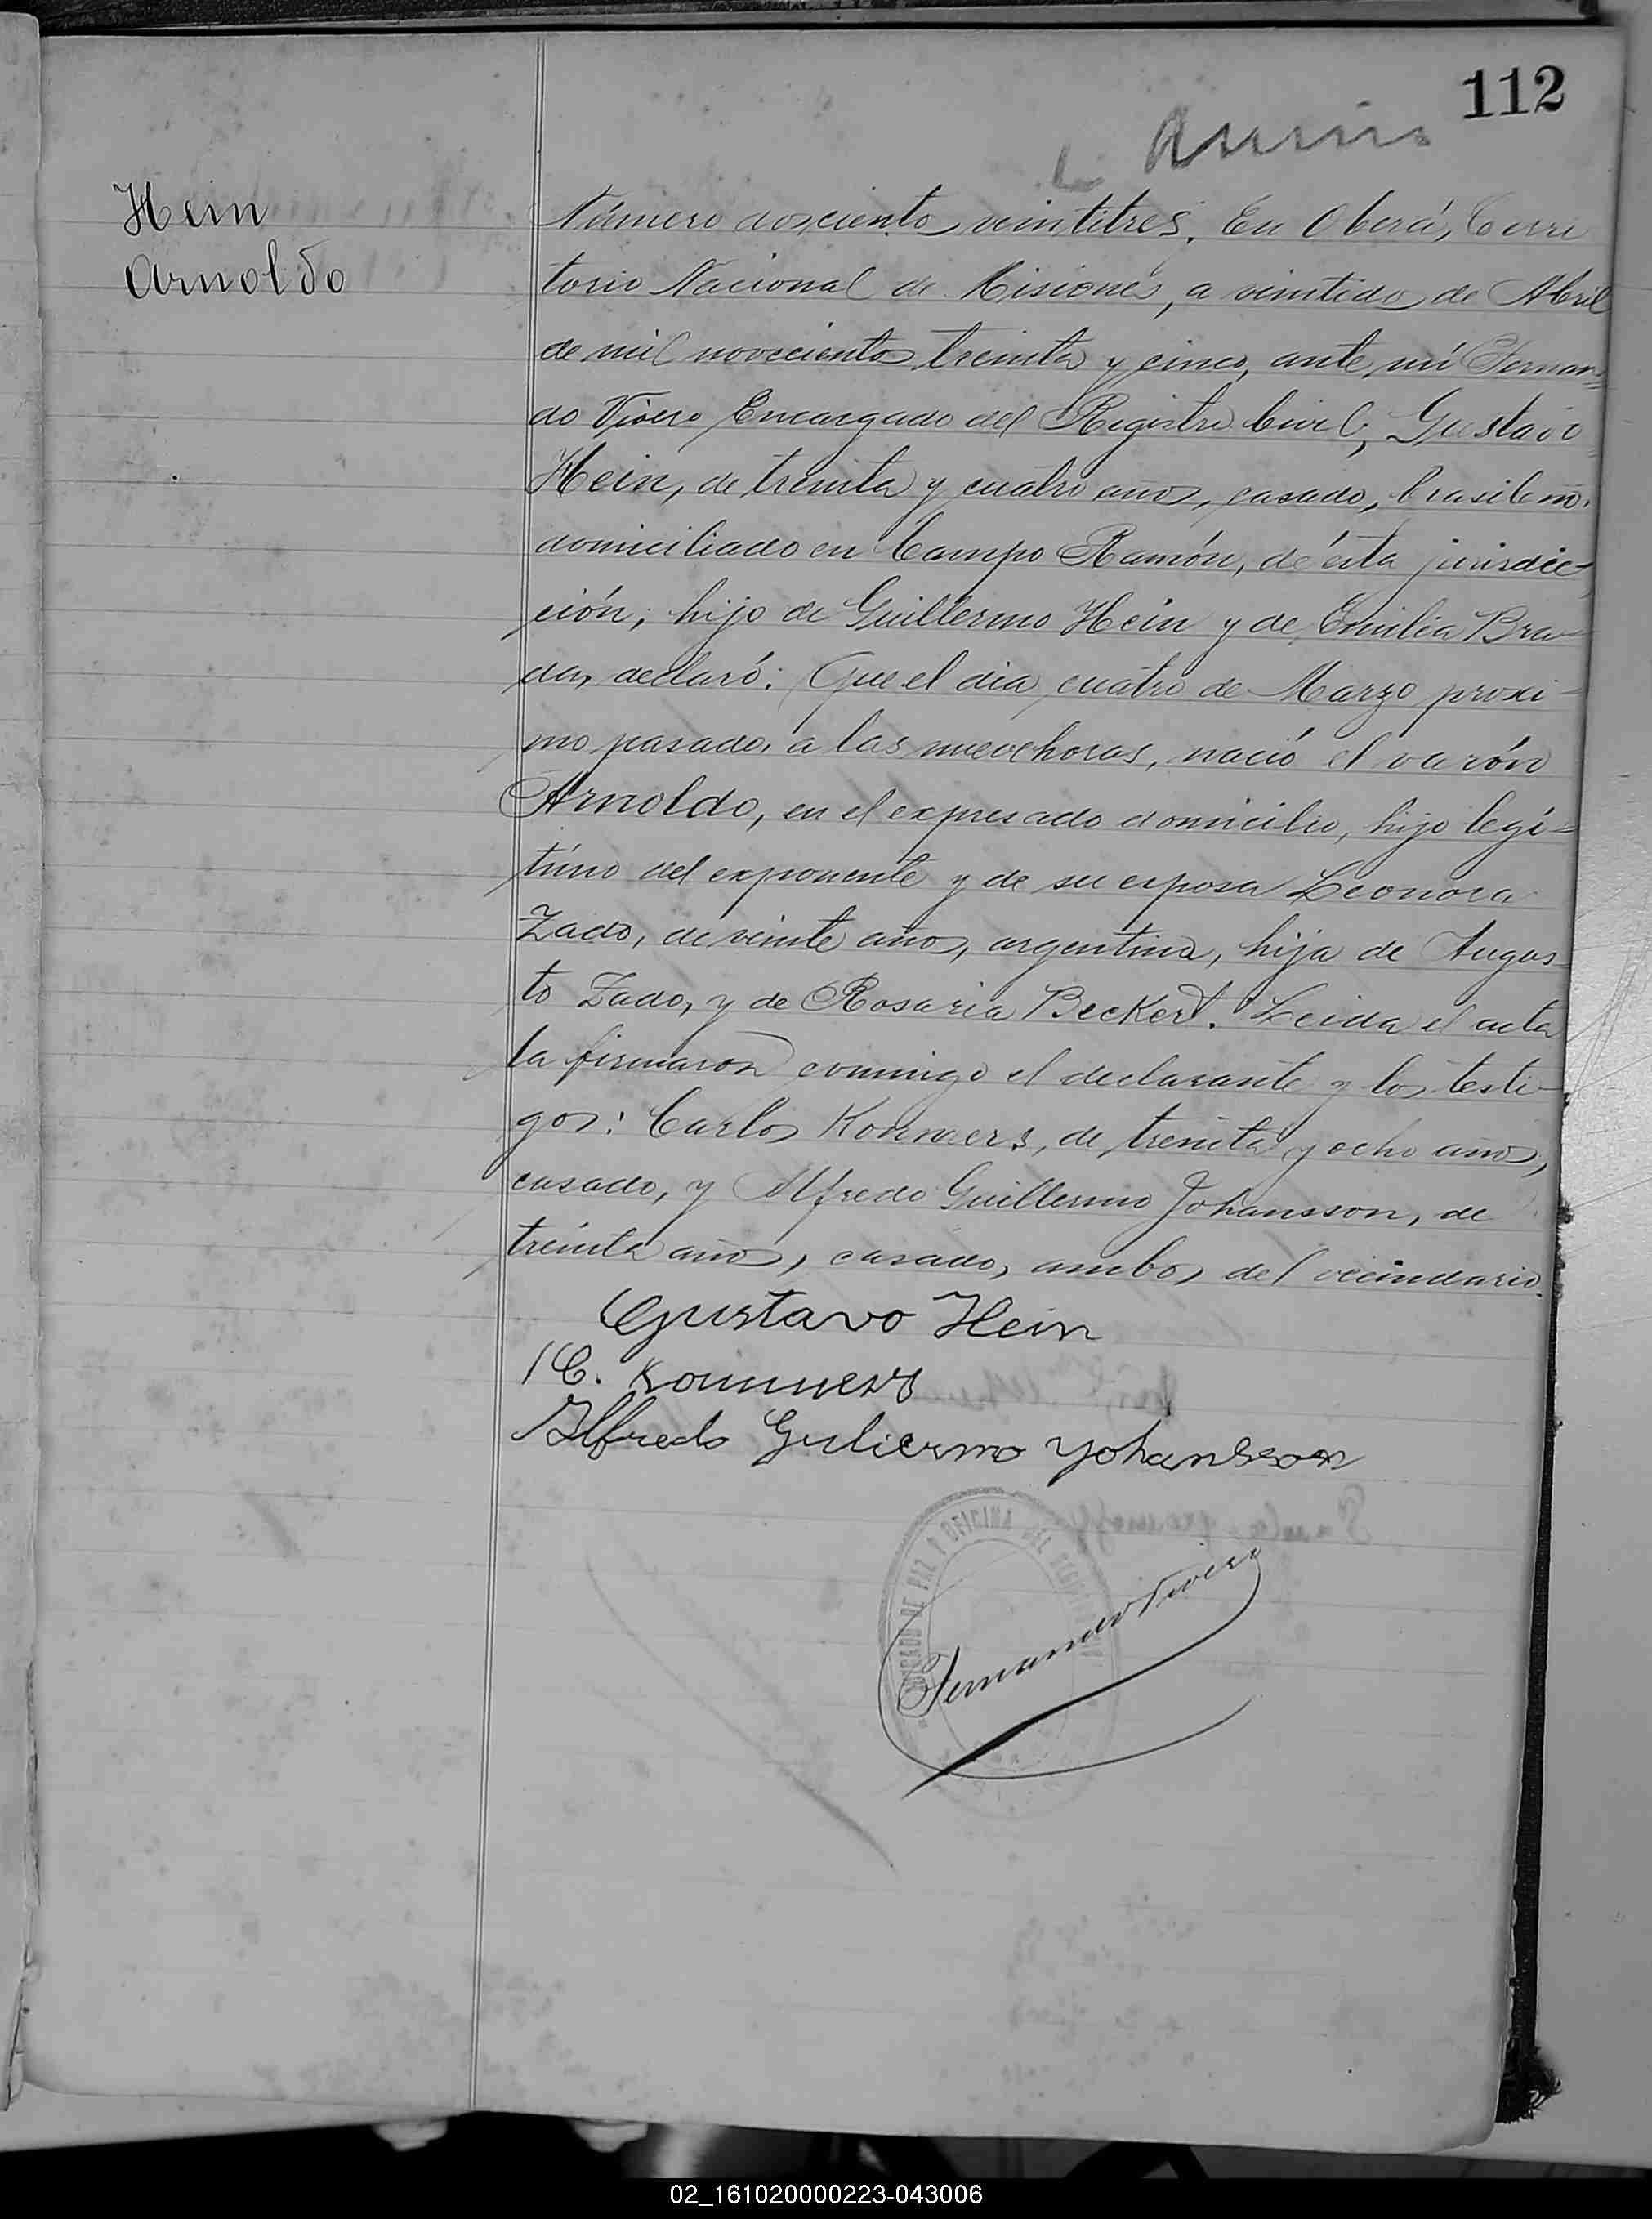 112
Hein
Arnoldo
Número doscientos veintitres. En Oberá, Terri
torio Nacional de Misiones, a veintidos de Abril
de mil novecientos treinta y cinco, ante mí Fernan-
do Vivero Encargado del Registro Civil, Gustavo
Hein, de treinta y cuatro años, casado, brasileño,
domiciliado en Campo Ramón, de ésta jurisdic-
ción, hijo de Guillermo Hein y de Emilia Bra-
da, declaró: Que el dia cuatro de Marzo proxi-
mo pasado, a las nueve horas, nació el varón
Arnoldo, en el expresado domicilio, hijo legí-
timo del exponente y de su esposa Leonora
Zado, de veinte años, argentina, hija de Augus
to Zado, y de Rosaria Beckert. Leida el acta
la firmaron conmigo el declarante y los testi-
gos: Carlos Kommers, de treinta y ocho años,
casado, y Alfredo Guillermo Johansson, de
treinta años, casado, ambos del vecindario.
Gustavo Hein
C. Kommers
Alfredo Guliermo Yohansson
JUZGADO DE PAZ Y OFICINA DEL REGISTRO CIVIL
Fernando Vivero
02_161020000223-043006